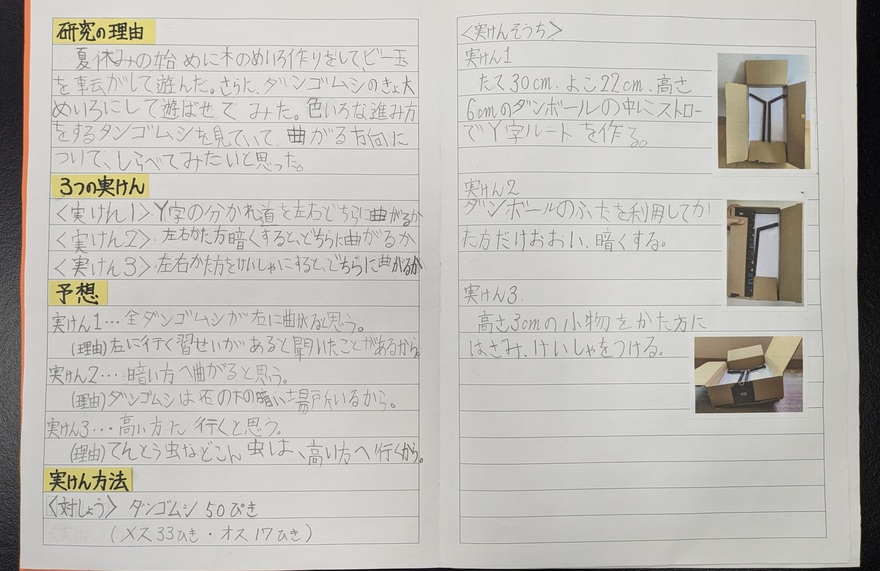 研究の理由
夏休みの始めに木のめいろ作りをして、ビー玉
を転がして遊んだ。さらに、ダンゴムシのきょ大
めいろにして遊ばせてみた。色いろな進み方
をするダンゴムシを見ていて、曲がる方向に
ついて、しらべてみたいと思った。
3つの実けん
〈実けん1〉Y字の分かれ道を左右どちらに曲がるか
〈実けん2〉左右かた方暗くすると、どちらに曲がるか
〈実けん3〉左右かた方をけいしゃにすると、どちらに曲がるか
予想
実けん1…全ダンゴムシが右に曲がると思う。
(理由)左に行く習せいがあると聞いたことがあるから。
実けん2…暗い方へ曲がると思う。
(理由)ダンゴムシは石の下の暗い場所にいるから。
実けん3…高い方に行くと思う。
(理由)てんとう虫などこん虫は、高い方へ行くから。
実けん方法
〈対しょう〉ダンゴムシ50ぴき
(メス33ひき・オス17ひき)
〈実けんそうち〉
実けん1
たて30cm、よこ22cm、高さ
6cmのダンボールの中にストロー
でY字ルートを作る。
実けん2
ダンボールのふたを利用してか
た方だけおおい、暗くする。
実けん3
高さ3cmの小物をかた方に
はさみ、けいしゃをつける。